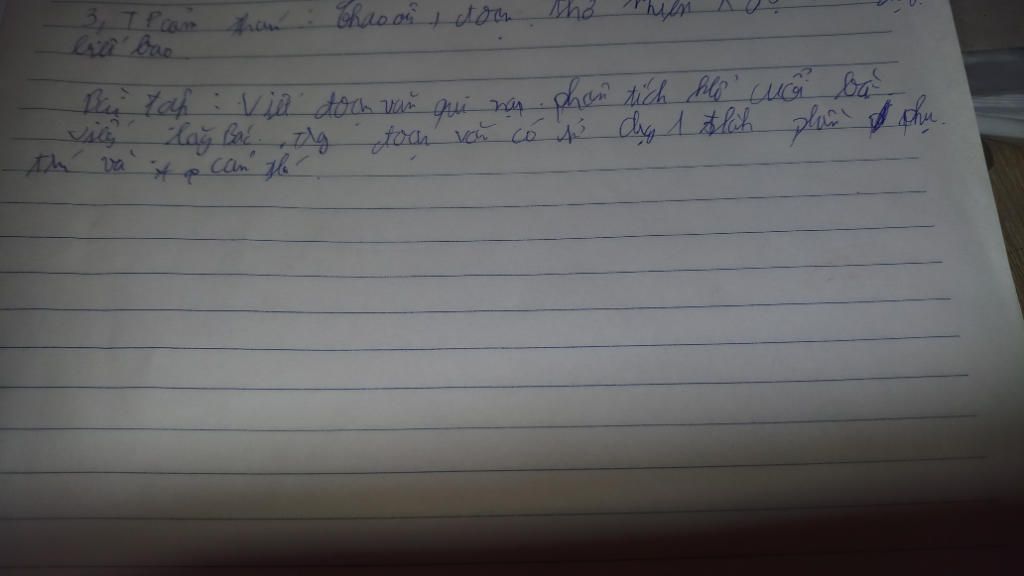 3, TP cảm thán : Chao ôi, đoạn thơ
biết bao
Bài tập : Viết đoạn văn qui nạp phân tích khổ cuối bài
viếng lăng Bác, trg đoạn văn có sử dụg 1 thành phần phụ
thí và tp cảm thá